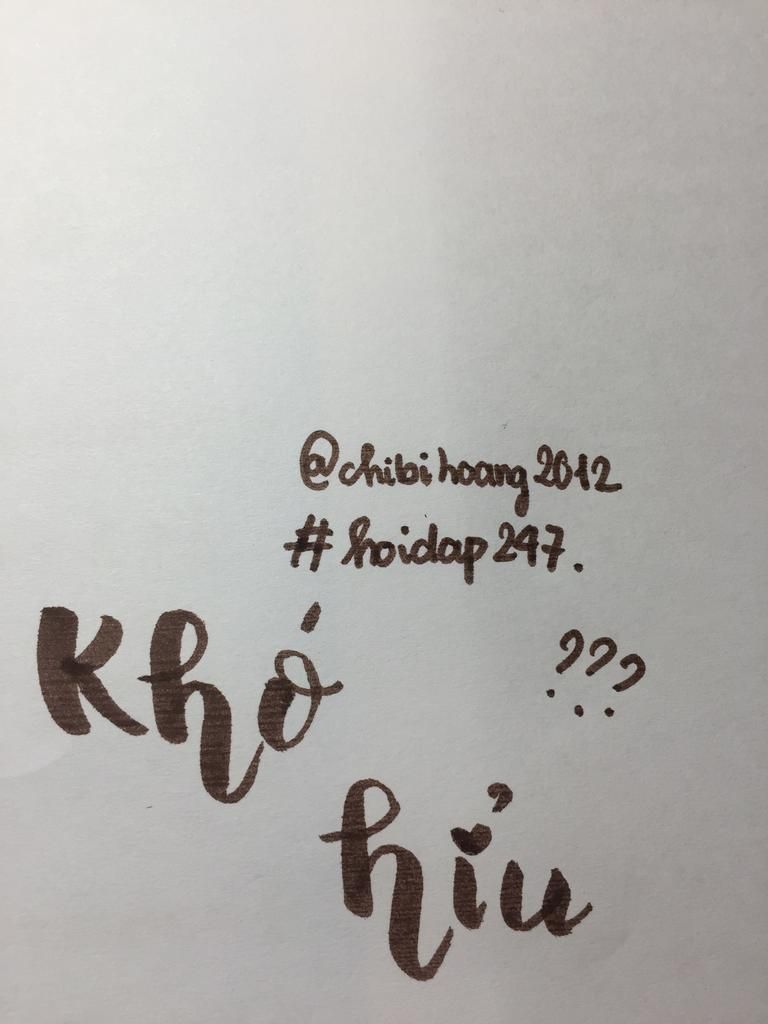 @chibihoang2012
#hoidap247.
Khó
???
hỉu